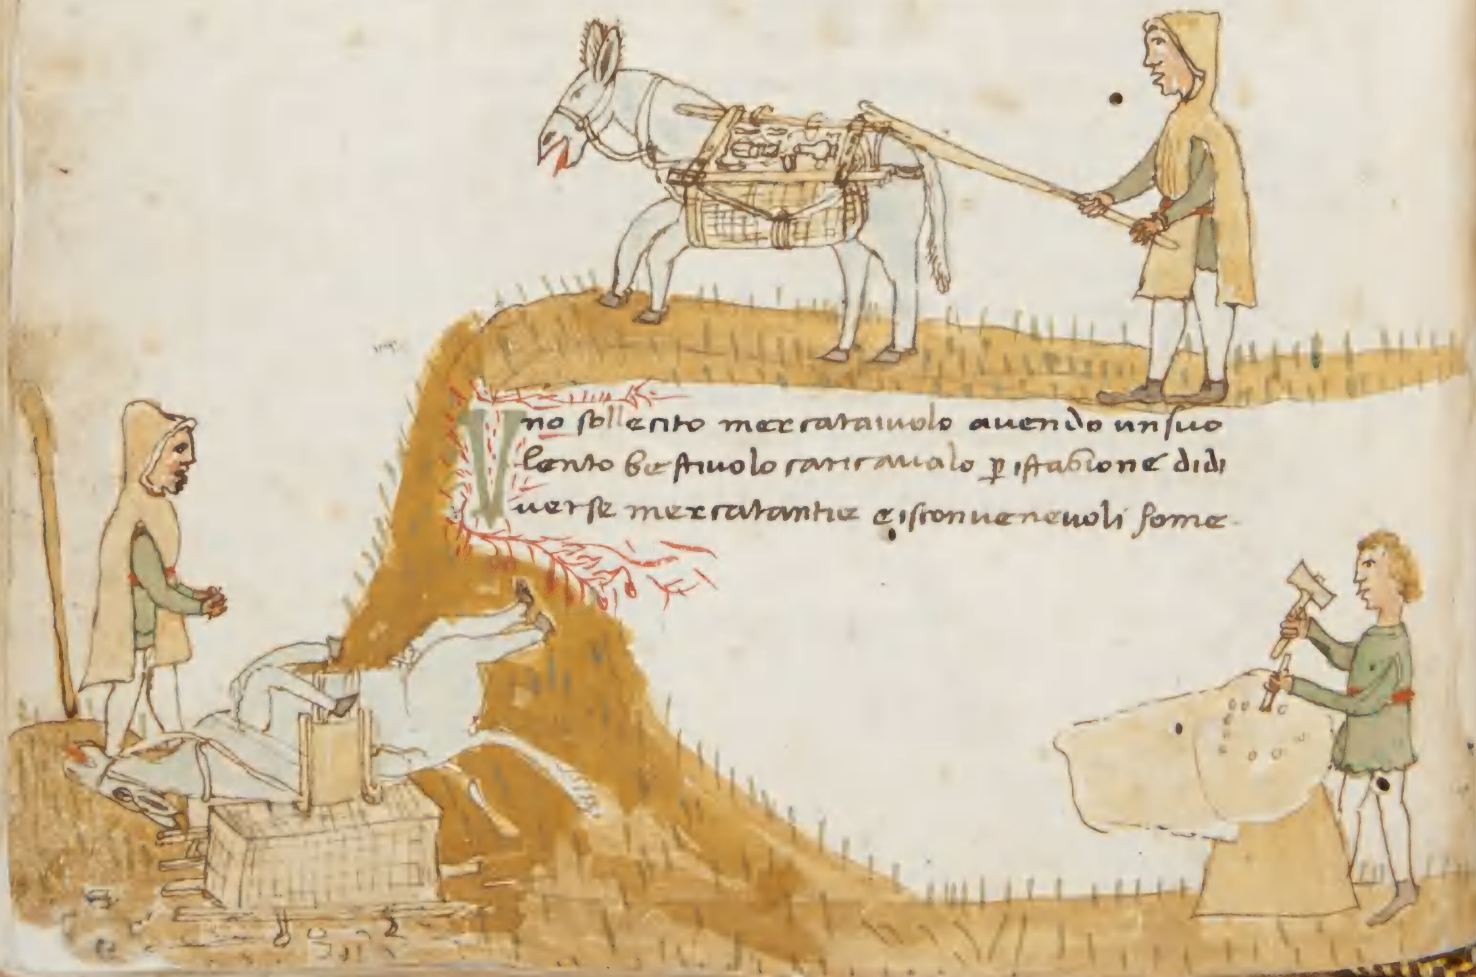 Uno sollecito mercataiuolo auendo un suo
lento bestiuolo caricaualo p istagione di di
uerse mercatantie e isconueneuoli some.